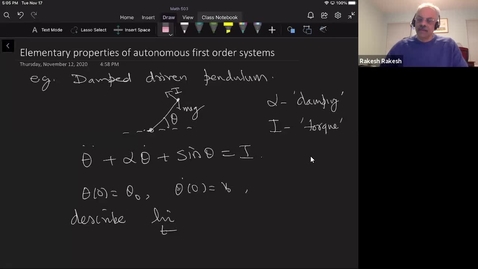 5:05 PM Tue Nov 17
Math 503
Draw
Class Notebook
Text Mode
Lasso Select
Insert Space
Elementary properties of autonomous first order systems
Thursday, November 12, 2020 4:58 PM
eg. Damped driven pendulum.
I
mg
θ
α - 'damping'
I - 'torque'
θ̈ + αθ̇ + sinθ = I.
θ(0) = θ₀, θ̇(0) = γ₀,
describe lim
t
Rakesh Rakesh